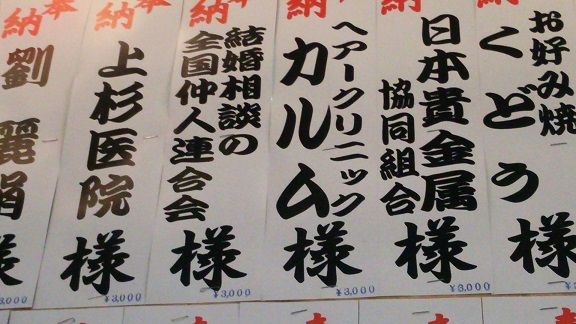 奉納
お好み焼
くどう
様
¥3,000
奉納
日本貴金属
協同組合
様
¥3,000
納
ヘアークリニック
カルム
様
¥3,000
奉納
結婚相談の
全国仲人連合会
様
¥3,000
奉納
上杉医院
様
¥3,000
奉納
劉麗娟
様
¥3,000